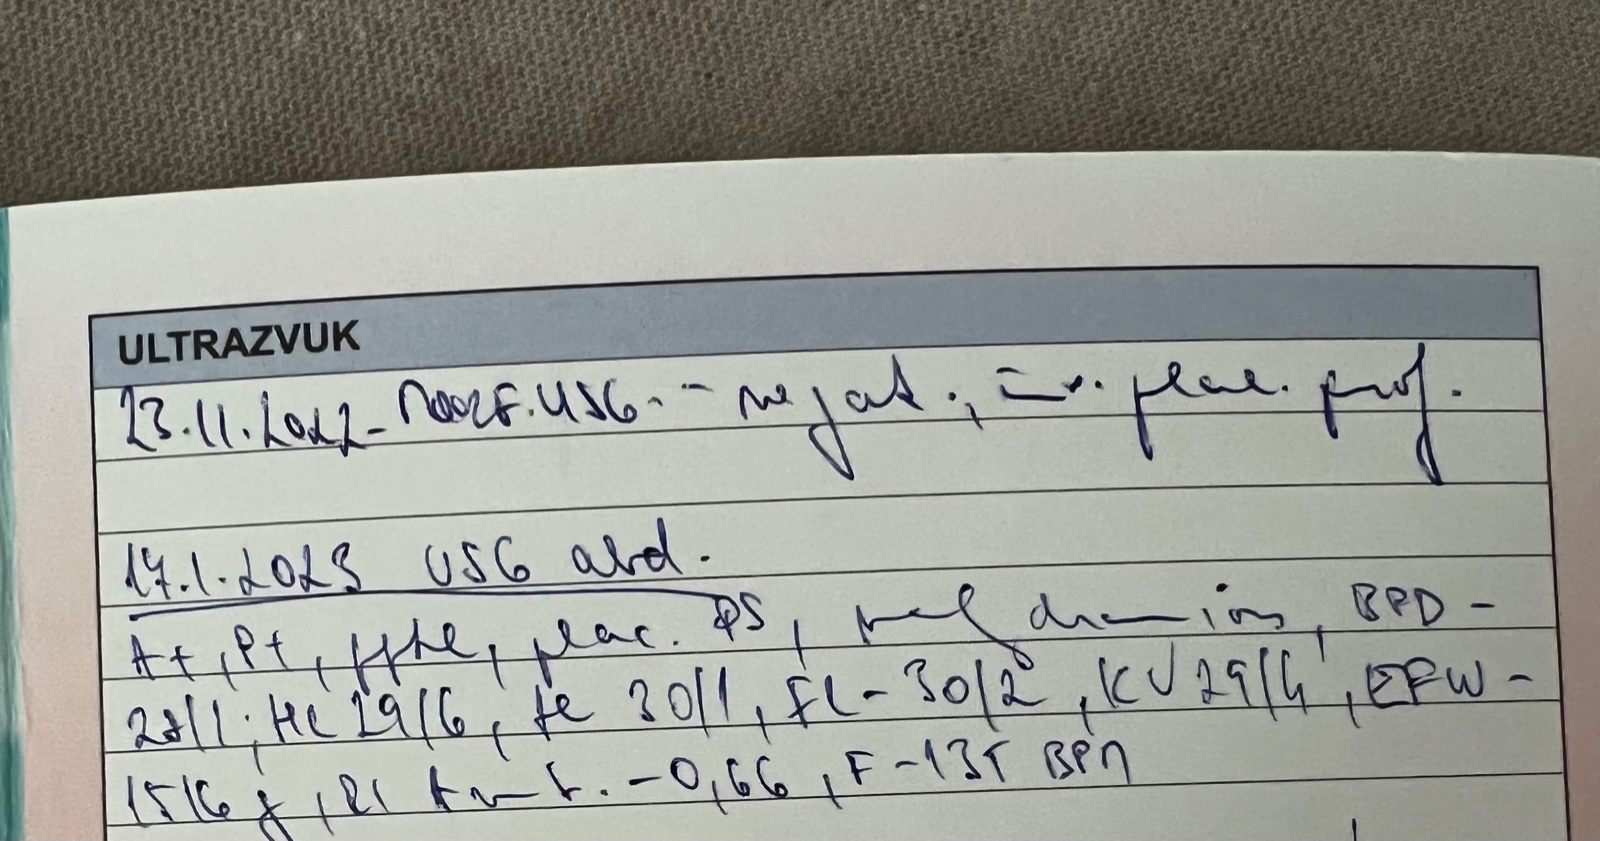 ULTRAZVUK
23.11.2022 - MORF. USG. - negat.; plac. prof.
17.1.2023 USG abd.
A+, P+, plac. PS, BPD -
28/1; HC 29/6, AC 30/1, FL - 30/2, KV 29/4, EFW -
1516 g, RI A. umb. - 0,66, F - 135 BPM